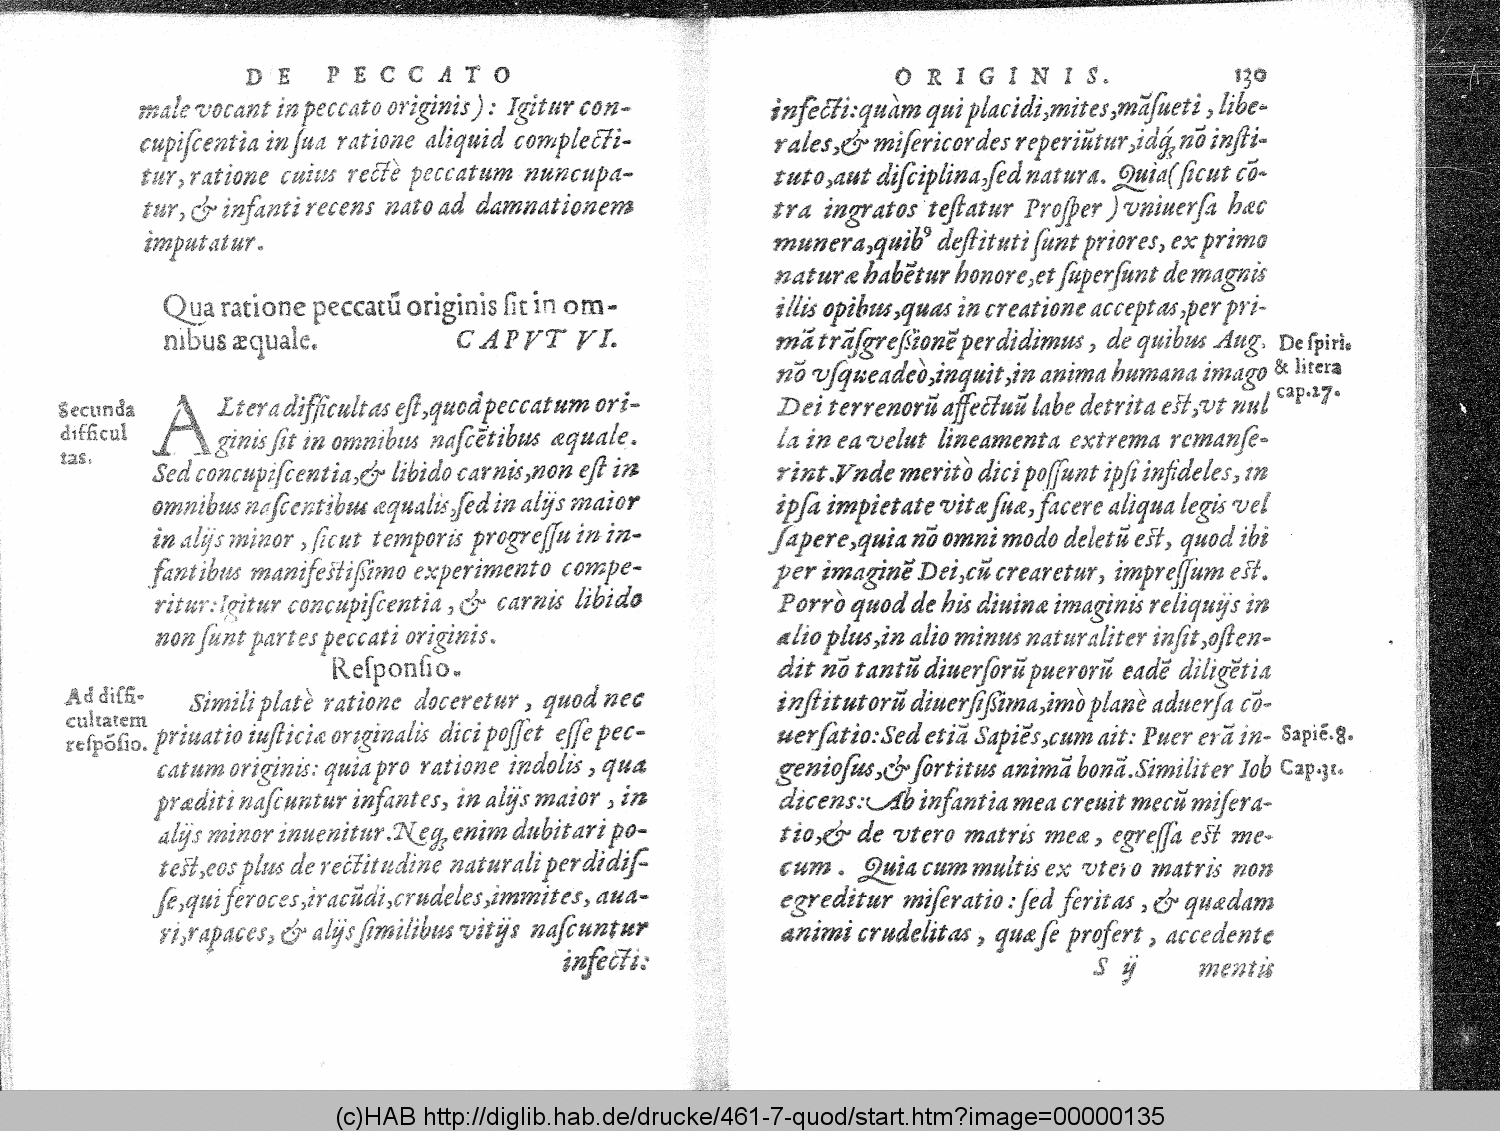 DE PECCATO
male vocant in peccato originis): Igitur con-
cupiſcentia in ſua ratione aliquid complecti-
tur, ratione cuius rectè peccatum nuncupa-
tur, & infanti recens nato ad damnationem
imputatur.
Qua ratione peccatũ originis ſit in om-
nibus æquale. CAPVT VI.
Secunda
difficul
tas.
ALtera difficultas eſt, quod peccatum ori-
ginis ſit in omnibus naſcẽtibus æquale.
Sed concupiſcentia, & libido carnis, non eſt in
omnibus naſcentibus æqualis, ſed in alijs maior
in alijs minor, ſicut temporis progreſſu in in-
fantibus manifeſtiſsimo experimento compe-
ritur: Igitur concupiſcentia, & carnis libido
non ſunt partes peccati originis.
Reſponſio.
Ad diffi-
cultatem
reſpõſio.
Simili planè ratione doceretur, quod nec
priuatio iuſticiæ originalis dici poſſet eſſe pec-
catum originis: quia pro ratione indolis, qua
præditi naſcuntur infantes, in alijs maior, in
alijs minor inuenitur. Neq; enim dubitari po-
teſt, eos plus de rectitudine naturali perdidiſ-
ſe, qui feroces, iracũdi, crudeles, immites, aua-
ri, rapaces, & alijs ſimilibus vitijs naſcuntur
infecti:
ORIGINIS. 130
infecti: quàm qui placidi, mites, mãſueti, libe-
rales, & miſericordes reperiũtur, idq́; nõ inſti-
tuto, aut diſciplina, ſed natura. Quia (ſicut cõ-
tra ingratos teſtatur Proſper) vniuerſa hæc
munera, quibꝰ deſtituti ſunt priores, ex primo
naturæ habẽtur honore, et ſuperſunt de magnis
illis opibus, quas in creatione acceptas, per pri-
mã trãſgreſsionẽ perdidimus, de quibus Aug.
nõ vſqueadeò, inquit, in anima humana imago
Dei terrenorũ affectuũ labe detrita eſt, vt nul
la in ea velut lineamenta extrema remanſe-
rint. Vnde meritò dici poſſunt ipſi infideles, in
ipſa impietate vitæ ſuæ, facere aliqua legis vel
ſapere, quia nõ omni modo deletũ eſt, quod ibi
per imaginẽ Dei, cũ crearetur, impreſſum eſt.
Porrò quod de his diuinæ imaginis reliquijs in
alio plus, in alio minus naturaliter inſit, oſten-
dit nõ tantũ diuerſorũ puerorũ eadẽ diligẽtia
inſtitutorũ diuerſiſsima, imò planè aduerſa cõ-
uerſatio: Sed etiã Sapiẽs, cum ait: Puer erã in-
genioſus, & ſortitus animã bonã. Similiter Iob
dicens: Ab infantia mea creuit mecũ miſera-
tio, & de vtero matris meæ, egreſſa eſt me-
cum. Quia cum multis ex vtero matris non
egreditur miſeratio: ſed feritas, & quædam
animi crudelitas, quæ ſe profert, accedente
S ij mentis
De ſpiri.
& litera
cap.27.
Sapiẽ.8.
Cap.31.
(c)HAB http://diglib.hab.de/drucke/461-7-quod/start.htm?image=00000135